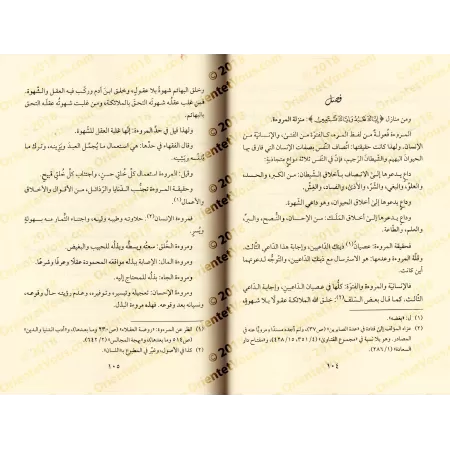 فصل
ومن منازل ﴿إِيَّاكَ نَعْبُدُ وَإِيَّاكَ نَسْتَعِينُ﴾: منزلة المروءة.
المروءة فُعولة من لفظ المرء، كالفتوَّة من الفتى، والإنسانيّة من
الإنسان. ولهذا كان حقيقتها: اتِّصاف النفس بصفات الإنسان التي فارق بها
الحيوان البهيم والشيطان الرجيم، فإنّ في النفس ثلاثة دواعٍ متجاذبة:
داعٍ يدعوها إلى الاتِّصاف بأخلاق الشيطان: من الكبر، والحسد،
والعلوِّ، والبغي، والشرِّ، والأذى، والفساد، والغشِّ.
وداعٍ يدعوها إلى أخلاق الحيوان، وهو داعي الشهوة.
وداعٍ يدعوها إلى أخلاق الملَك: من الإحسان، والنُّصح، والبرِّ،
والعلم، والطاعة.
فحقيقة المروءة: عصيان(١) ذينك الداعيين، وإجابة الداعي الثالث.
وقلّة المروءة وعدمها: هو الاسترسال مع ذينك الداعيين، والتوجُّه لدعوتهما أين
كانت.
فالإنسانية والمروءة والفتوّة: كلُّها في عصيان الداعيين، وإجابة الداعي
الثالث. كما قال بعض السلف(٢): خلق الله الملائكة عقولًا بلا شهوةٍ،
(١) ل: «بغضه».
(٢) عزاه المؤلف إلى قتادة في «عدة الصابرين» (ص٣٧)، ولم أجده مسندًا ومرويًّا عنه في
المصادر. وهو بلا نسبة في «مجموع الفتاوى» (٤/٣٥١، ١٥/٤٢٨)، و«مفتاح دار
السعادة» (١/٢٨٦).
١٠٤
وخلق البهائم شهوةً بلا عقولٍ، وخلق ابن آدم وركَّب فيه العقل والشهوة.
فمن غلب عقلُه شهوتَه التحق بالملائكة، ومن غلبت شهوتُه عقلَه التحق
بالبهائم.
ولهذا قيل في حدِّ المروءة: إنَّها غلبة العقل للشهوة.
وقال الفقهاء في حدِّها: هي استعمال ما يُجمِّل العبد ويَزينه، وترك ما
يُدنِّسه ويَشينه.
وقيل: المروءة استعمال كلِّ خُلقٍ حسنٍ، واجتناب كلِّ خُلقٍ قبيحٍ.
وحقيقة المروءة تجنُّب الدنايا والرذائل، من الأقوال والأخلاق
والأعمال(١).
فمروءة الإنسان(٢): حلاوته وطيبه ولينه، واجتناء الثمار منه بسهولةٍ
ويُسرٍ.
ومروءة الخُلق: سعته وبسطه وبذله للحبيب والبغيض.
ومروءة المال: الإصابة ببذله مواقعه المحمودة عقلًا وعرفًا وشرعًا.
ومروءة الجاه: بذله للمحتاج إليه.
ومروءة الإحسان: تعجيله وتيسيره، وتوفيره، وعدم رؤيته حال وقوعه،
ونسيانه بعد وقوعه. فهذه مروءة البذل.
(١) انظر عن المروءة: «روضة العقلاء» (ص٢٣٠ وما بعدها)، و«أدب الدنيا والدين»
(ص٥١٤ وما بعدها)، و«بهجة المجالس» (٢/٦٤٢).
(٢) كذا في الأصول، وغيّر في المطبوع بـ«اللسان».
١٠٥